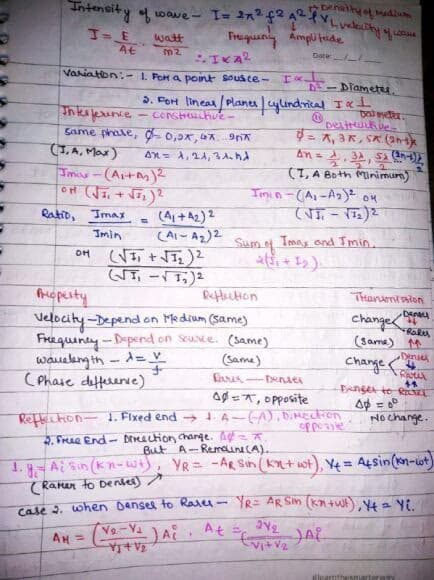 Intensity of wave - I = 2π² f² A² ρ V → Density of medium
↳ velocity of wave
I = E/At · watt/m² Frequency Amplitude
∴ I ∝ A² Date:
Variation:- 1. For a point source - I ∝ 1/D² - Diameter.
2. For linear/Planer/cylindrical I ∝ 1/D
Diameter.
Interference - constructive - (ii) Destructive -
same phase, φ = 0, 2π, 4π... 2nπ φ = π, 3π, 5π (2n-1)π
(I, A, Max) Δx = λ, 2λ, 3λ..nλ Δx = λ/2, 3λ/2, 5λ/2 (2n-1)λ/2
(I, A Both Minimum)
Imax - (A1+A2)² Imin - (A1-A2)² or
or (√I1 + √I2)² (√I1 - √I2)²
Ratio, Imax/Imin = (A1+A2)²/(A1-A2)²
Sum of Imax and Imin.
or (√I1 + √I2)²/(√I1 - √I2)² 2(I1+I2)
Property Reflection Transmission
Velocity - Depend on Medium (same) change < Denser ↓↓
Frequency - Depend on source. (same) (same) Rarer ↑↑
wavelength - λ = v/f (same) change < Denser ↓↓
Rarer ↑↑
(Phase difference) Rarer - Denser Denser to Rarer
Δφ = π, opposite Δφ = 0°
Reflection - 1. Fixed end → 1. A - (-A), Direction opposite No change.
2. Free End - Direction change. Δφ = π.
But A - Remains (A).
1. yi = Ai sin (kx-wt), YR = -AR sin (kx+wt), Yt = At sin (kx-wt)
(Rarer to Denser)
case 2. when Denser to Rarer - YR = AR sin (kx+wt), Yt = Yi.
AR = (V2-V1/V1+V2) Ai, At = (2V2/V1+V2) Ai